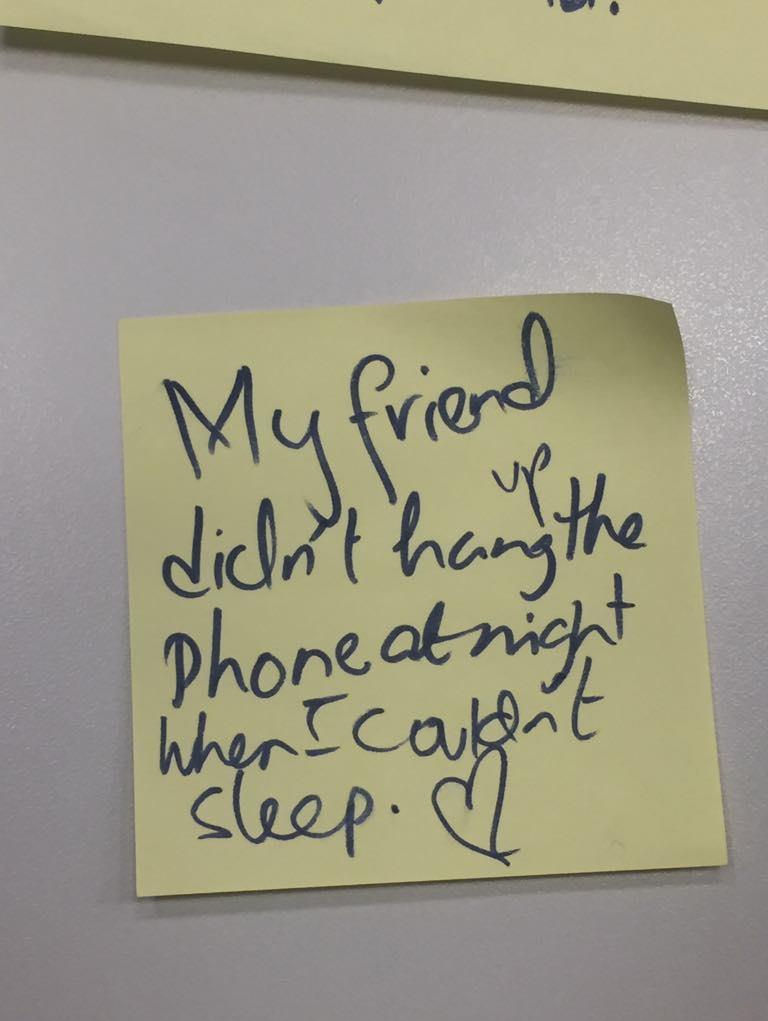 My friend
didn't hang up the
phone at night
when I couldn't
sleep. ♡